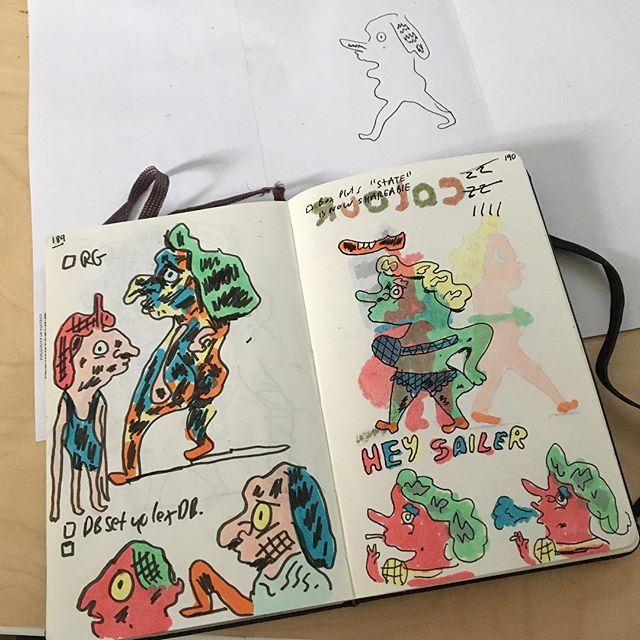 189
RG
DB set up lexDB.
190
Box Plots "STATE"
is NOW SHAREABLE
HEY SAILER